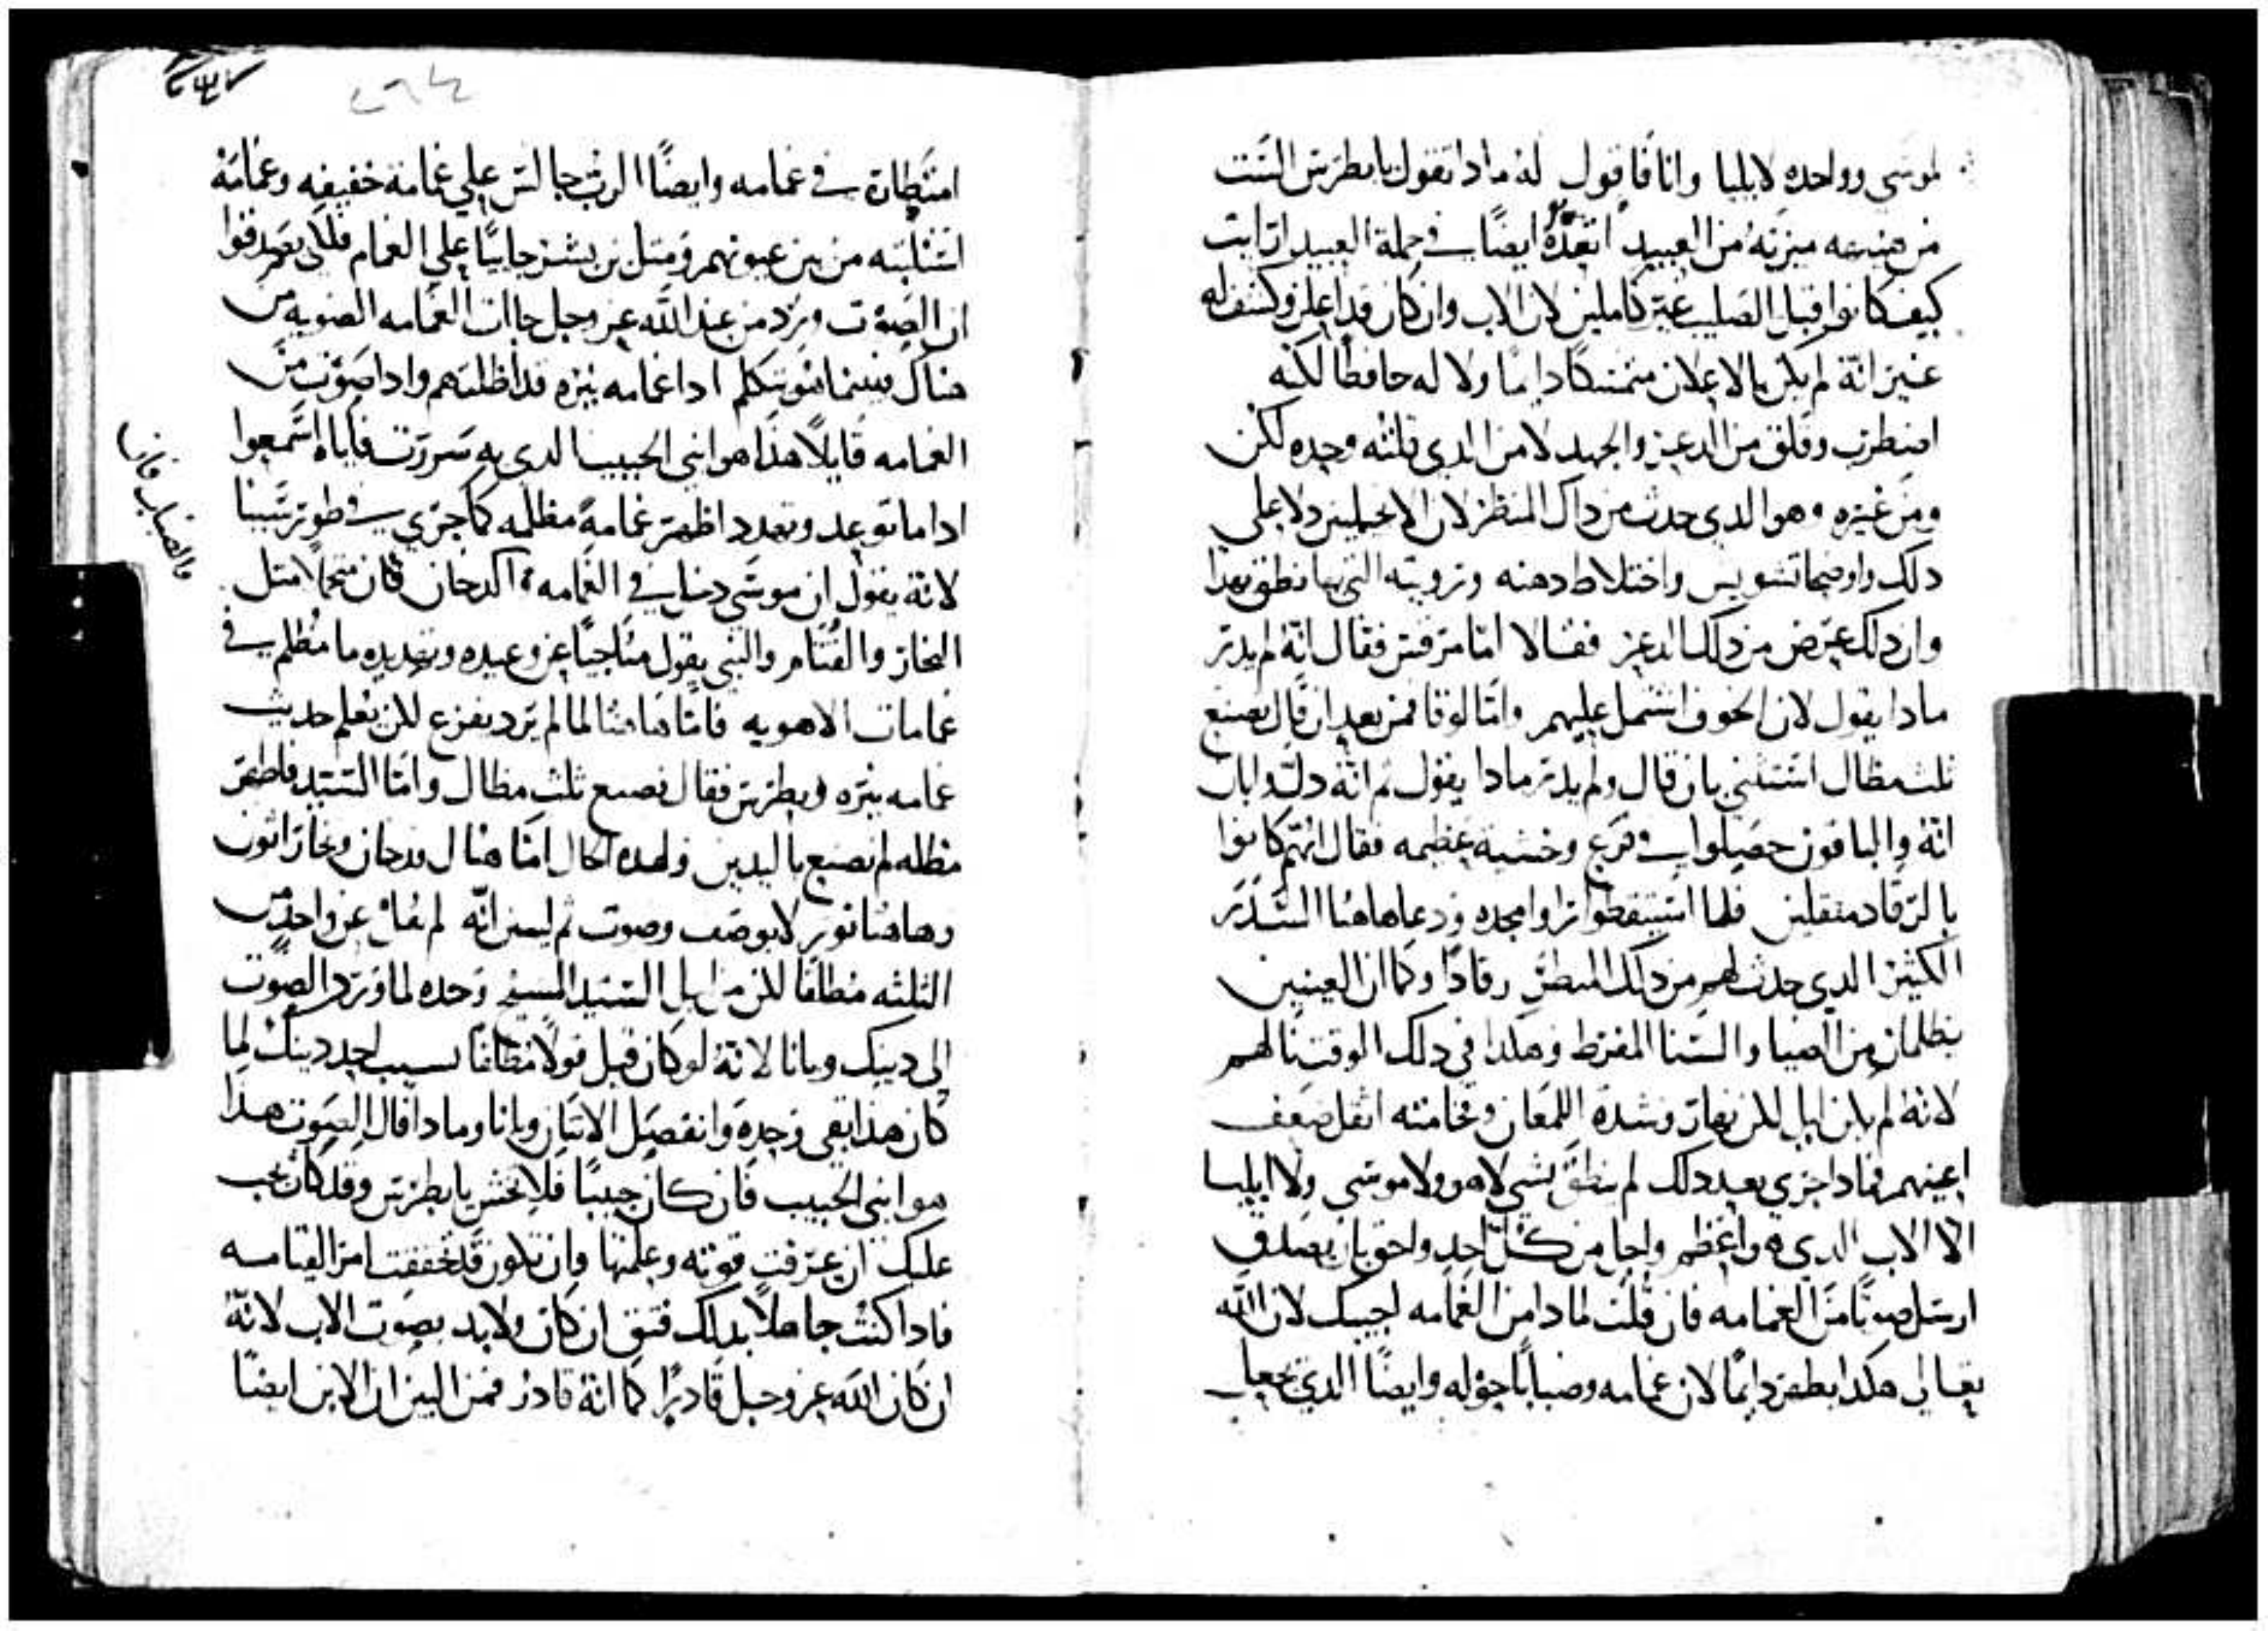 لموسى وواحده لايليا وانا فاقول له مادا تقول يابطرس الست
من هنيهه ميزته من العبيد اتعده ايضًا في جملة العبيد ارايت
كيف كانوا قبل الصليب غير كاملين لان الاب وان كان قد اعلن وكشف له
غير انّه لم يكن بالاعلان متمسكًا دايمًا ولا له حافظًا لكنه
اضطرب وقلق من الدعر والجهد لا من الدي قلته وحده لكن
ومن غيره وهو الدي حدث من داك المنظر لان الانجيليين دلا على
دلك واوضحا تشويس واختلاط دهنه وترويته التي بها نطق بهدا
وان دلك عرض من دلك الدعر فقالا امّا مرقس فقال انّه لم يدر
مادا يقول لان الخوف اشتمل عليهم وامّا لوقا فمن بعد ان قال نصنع
ثلث مظال استثنى بان قال ولم يدر مادا يقول ثم انّه دل وابان
انّه والباقون حصلوا في فزع وخشيه عظيمه فقال انهم كانوا
بالرقاد مثقلين فلما استيقظوا راوا مجده ودعا هاهنا السدر
الكثير الدي حدث لهم من دلك المنظر رقادًا وكما ان العينين
يظلمان من الضيا والسنا المفرط وهكدا في دلك الوقت نالهم
لانّه لم يكن ليل لكن نهار وشدة اللمعان وفخامته اثقل ضعف
اعينهم فمادا جرى بعد دلك لم ينطق بشي لا هو ولا موسى ولا ايليا
الا الاب الدي هو اعظم واجل من كل احد واحق بان يصدق
ارسل صوتًا من الغمامه فان قلت لمادا من الغمامه اجيبك لان الله
تعالى هكدا يظهر دايمًا لان غمامه وضبابًا حوله وايضًا الدي يجعل
امتطاه في غمامه وايضًا الرب جالس على غمامة خفيفه وغمامة
اشتلبته من بين عيونهم ومتل بن بشر جاييًا على الغمام فلكى يصدقوا
ان الصوت ورد من عند الله عز وجل جاات الغمامه الصويه من
هناك فبينما هو يتكلم ادا غمامه نيره قد اظلتهم وادا صوت من
الغمامه قايلاً هدا هو ابني الحبيب الدي به سررت فاياه اسمعوا
ادا ما توعد وتهدد اظهر غمامةً مظلمه كما جرى في طور سينا
لانّه يقول ان موسى دخل في الغمامه اكدخان كان متجلا متل
البخار والقتام والنبي يقول مناجيًا عن وعيده وتهديده ما مظلم في
غمامات الاهويه فامّا هاهنا لما لم يرد يفزع لكن يعلم حديث
غمامه نيره وبطرس فقال نصنع ثلث مظال وامّا السيد فاظهر
مظله لم تصنع باليدين ولهده الحال امّا هناك فدخان وبخار اتون
وهاهنا نور لا يوصف وصوت ثم ليبين انّه لم يقال عن واحد من
الثلثه مطلقًا لكن من اجل السيد المسيح وحده لما ورد الصوت
الى دينك وبانا لانّه لو كان قيل قولاً مطلقًا بسبب احد دينك لما
كان هدا بقي وحده وانفصل الاثنان وبانا ومادا قال الصوت هدا
هو ابني الحبيب فان كان حبيبًا فلا تخش يا بطرس وقد كان يجب
عليك ان عرفت قوته وعلمتها وان تكون قد تحققت امر القيامه
فادا كنت جاهلاً بدلك فتق ان كان ولابد بصوت الاب لانّه
ان كان الله عز وجل قادرًا كما انّه قادر فمن البين ان الابن ايضًا
والضباب فان